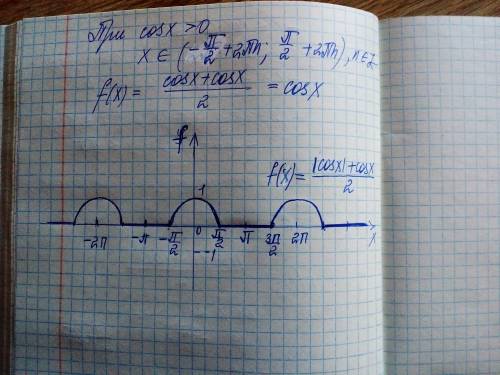 При cosx>0
x ∈ (-π/2+2πn; π/2+2πn), n∈Z
f(x) = (cosx+cosx)/2 = cosx
f
f(x) = (|cosx|+cosx)/2
1
-2π -π -π/2 0 π/2 π 3π/2 2π x
-1